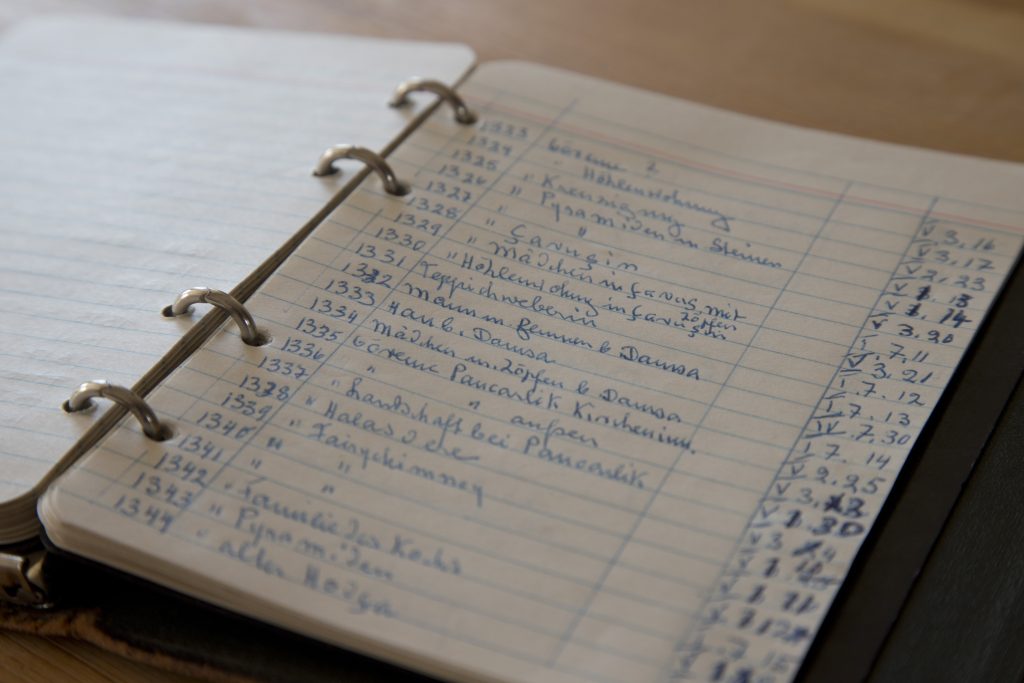 1333 Göreme 2
1324 " Höhlenwohnung
1325 " Kreuzigung
1326 " Pyramiden m Steinen
1327 " "
1328 " Çavuşin
1329 " Mädchen in Çavuş mit Zöpfen
1330 " Höhlenwohung in Çavuşin
1331 Teppichweberin
1332 Mann m Bennen b Damsa
1333 Hau b. Damsa
1334 Mädchen m. Zöpfen b Damsa
1335 Göreme Pancarlik Kircheninn.
1336 " " außen
1337 " Landschaft bei Pancarlik
1338 " Halas Dere
1339 " Fairychimney
1340 " "
1341 " "
1342 " Familie des Kochs
1343 " Pyramiden
1344 " alter Hodga
V 3.16
V 3.17
V 2.23
V 1.13
V 1.14
V 3.20
I 7.11
V 3.21
I 7.12
I 7.13
IV.7.30
I 7.14
V 2.25